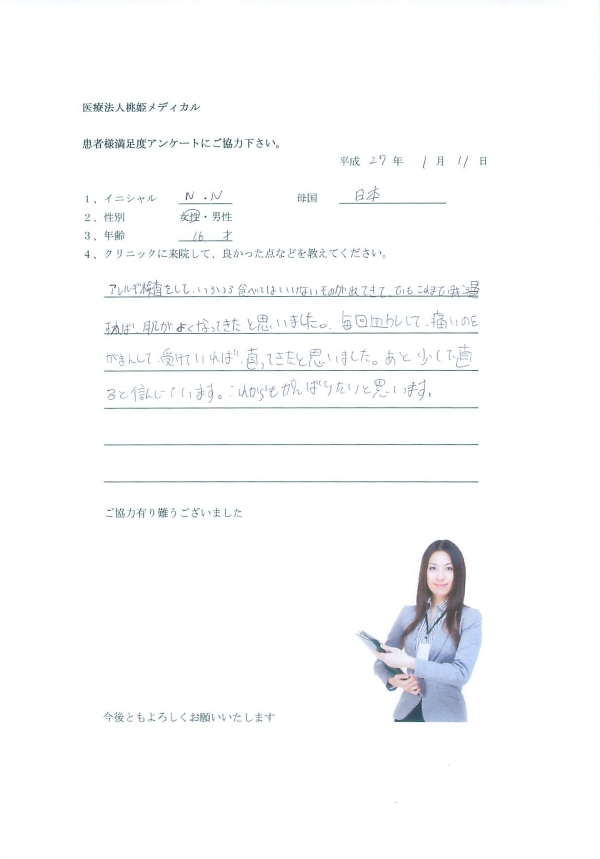 医療法人桃姫メディカル
患者様満足度アンケートにご協力下さい。
平成 27 年 1 月 11 日
1、イニシャル N.N 母国 日本
2、性別 女性・男性
3、年齢 16 才
4、クリニックに来院して、良かった点などを教えてください。
アレルギー検査をして、いろいろ食べてはいけないものが出てきて、でもこれまで我慢
すれば、肌がよくなってきたと思いました。毎回して、痛いのを
がまんして、受けていれば、直ってきたと思いました。あと少しで直
ると信じています。これからもがんばりたいと思います。
ご協力有り難うございました
今後ともよろしくお願いいたします